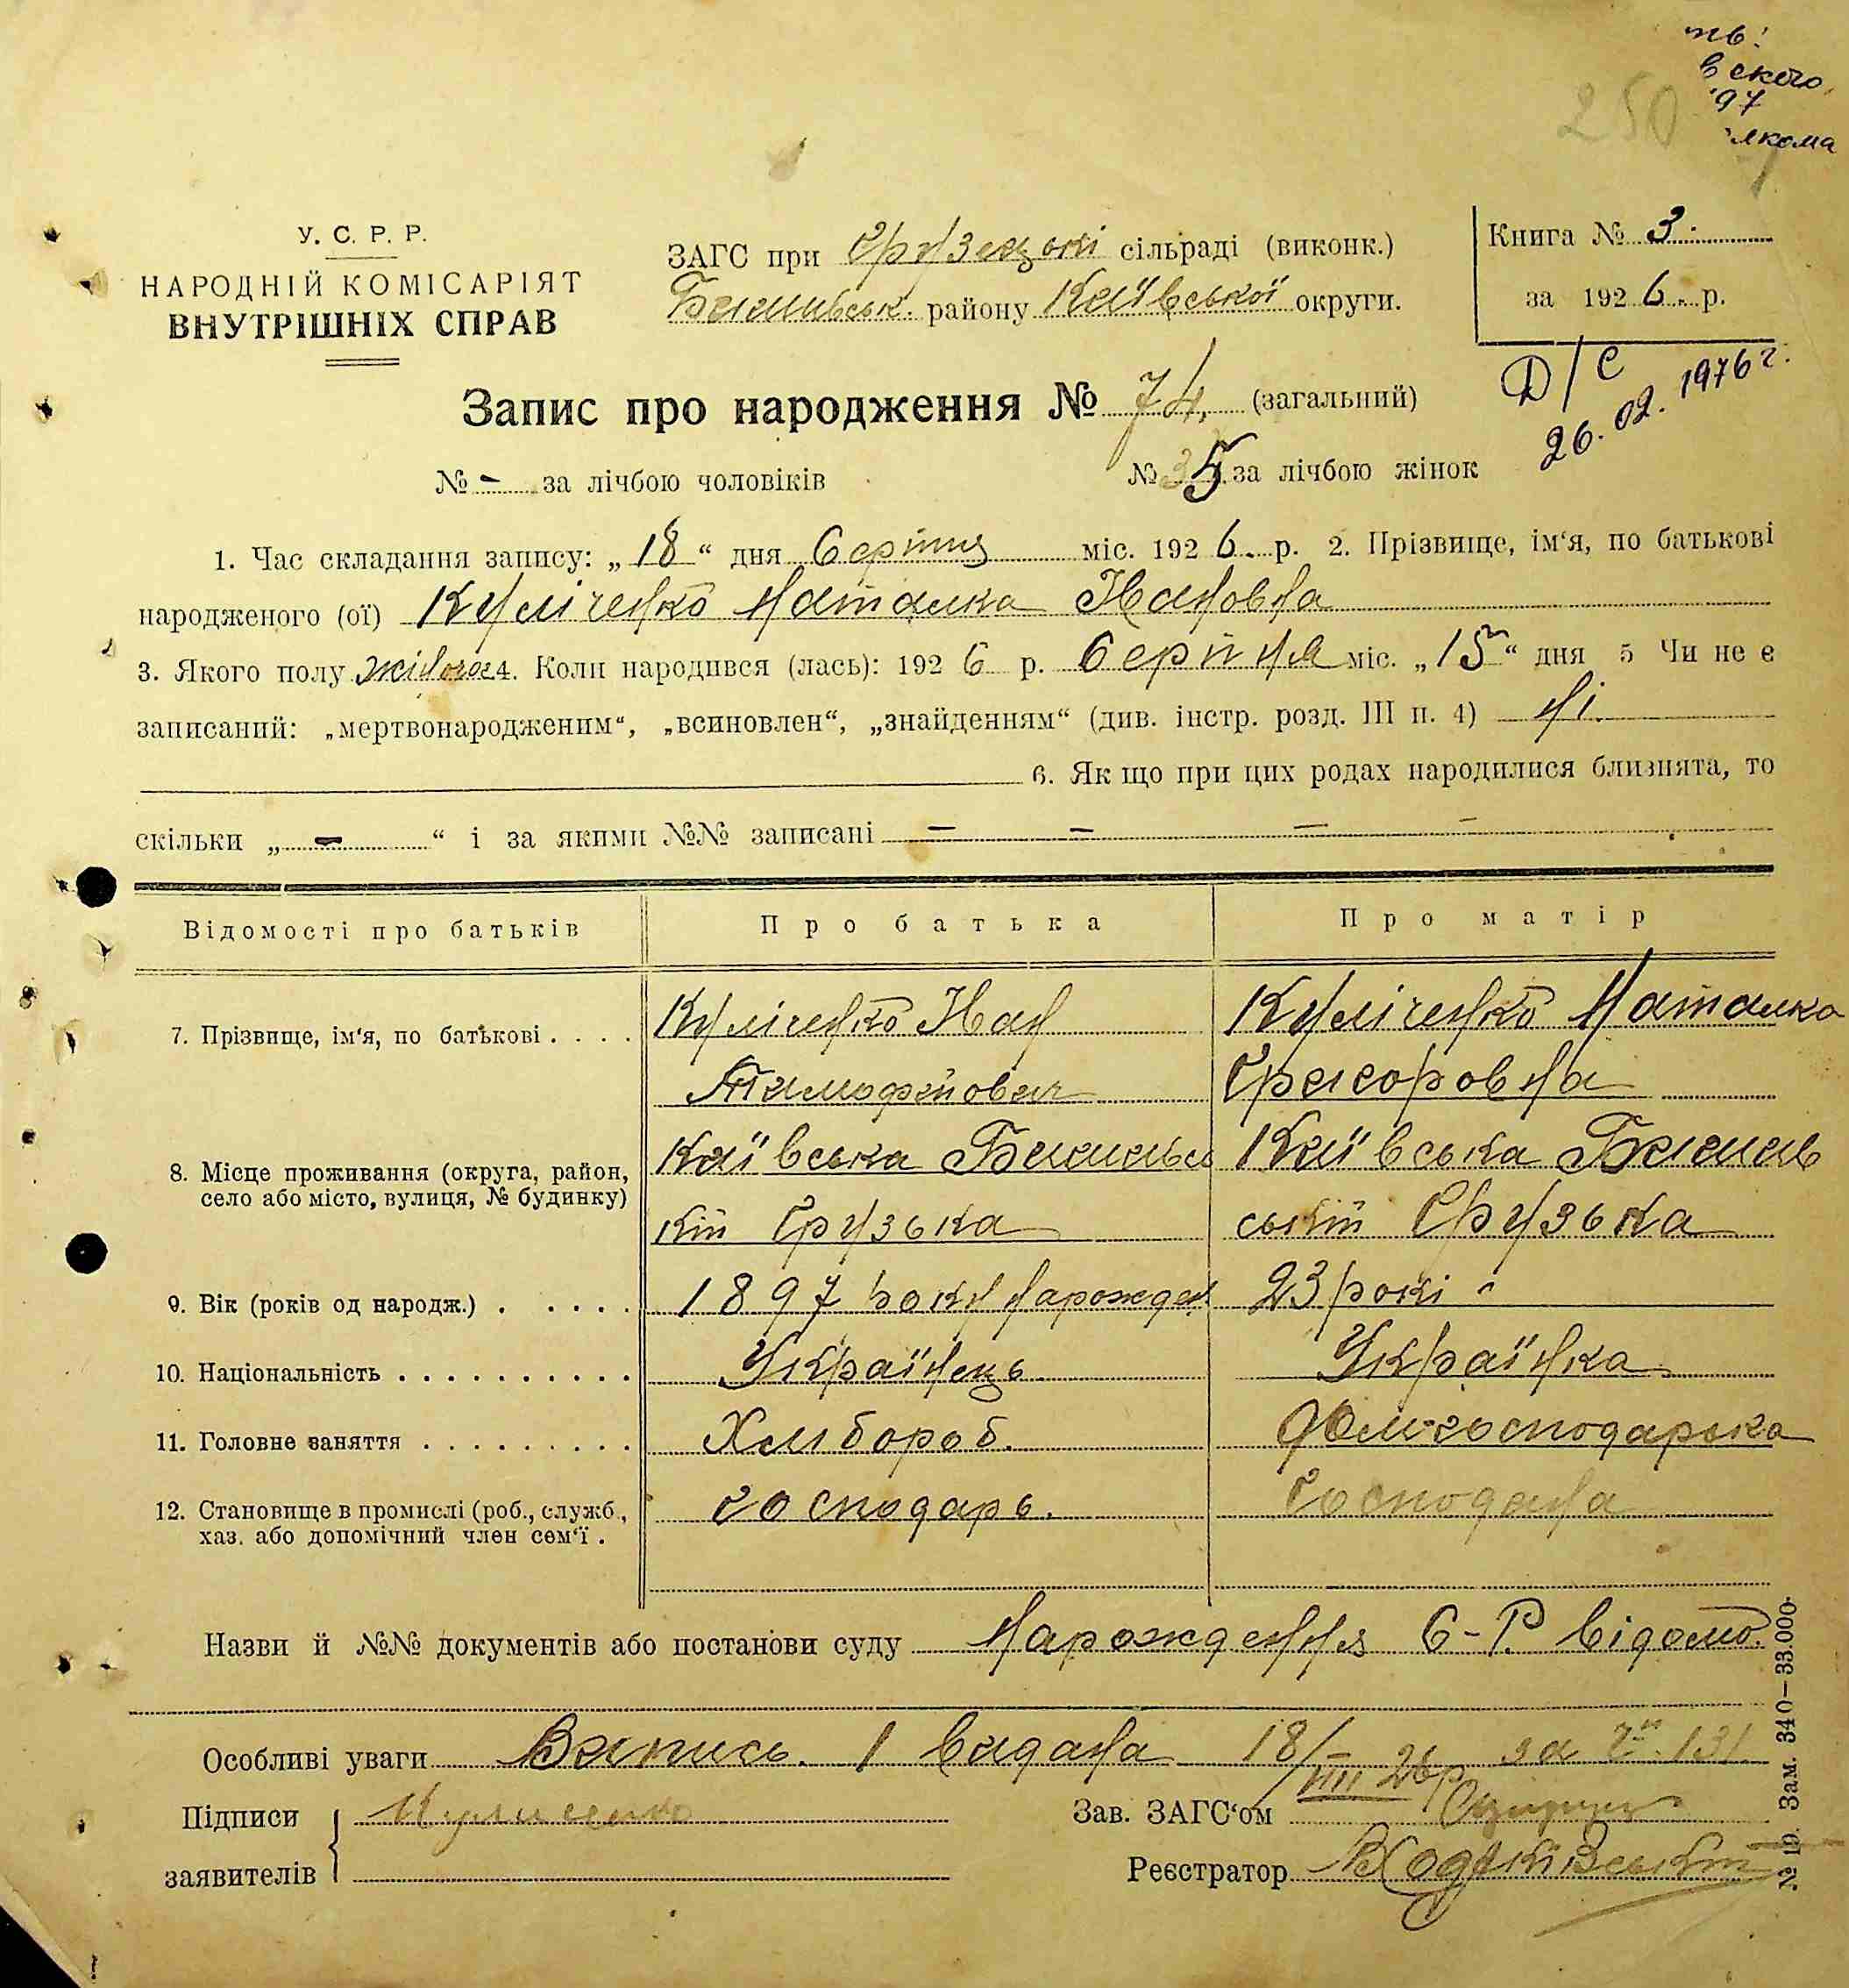 ть!
вского
'97
лкома
250
У. С. Р. Р.
НАРОДНІЙ КОМІСАРІЯТ
ВНУТРІШНІХ СПРАВ
ЗАГС при Грузецькі сільраді (виконк.)
району Київської округи.
Книга № 3.
за 1926 р.
Д/С
26.02.1976 г.
Запис про народження № 74 (загальний)
№ - за лічбою чоловіків
№ 35 за лічбою жінок
1. Час складання запису: „18“ дня серпня міс. 1926 р. 2. Прізвище, ім‘я, по батькові
народженого (ої) Куліченко Наталка Івановна
3. Якого полу жіночог 4. Коли народився (лась): 1926 р. серпня міс. „15“ дня 5 Чи не е
записаний: „мертвонародженим“, „всиновлен“, „знайденням“ (див. інстр. розд. III п. 4) Ні.
6. Як що при цих родах народилися близнята, то
скільки „ - “ і за якими №№ записані - - - -
Відомості про батьків
Про батька
Про матір
7. Прізвище, ім‘я, по батькові
Куліченко Іван
Тимофійович
Куліченко Наталка
Григоровна
8. Місце проживання (округа, район,
село або місто, вулиця, № будинку)
Київська Бишивсь
кий Грузька
Київська Бишив
ський Грузька
9. Вік (років од народж.)
1897 року нарожден
23 рокі
10. Національність
Українець
Українка
11. Головне заняття
Хлибороб.
дом-господарька
12. Становище в промислі (роб., служб.,
хаз. або допомічний член сем‘ї.
господарь.
Господиня
Назви й №№ документів або постанови суду Нарождення С-Р. відомо.
Особливі уваги Випись. 1 видана 18/VIII 26р за 131
Підписи
заявителів
Куличенко
Зав. ЗАГС‘ом
Реєстратор
№ 19. Зам. 340—33.000.